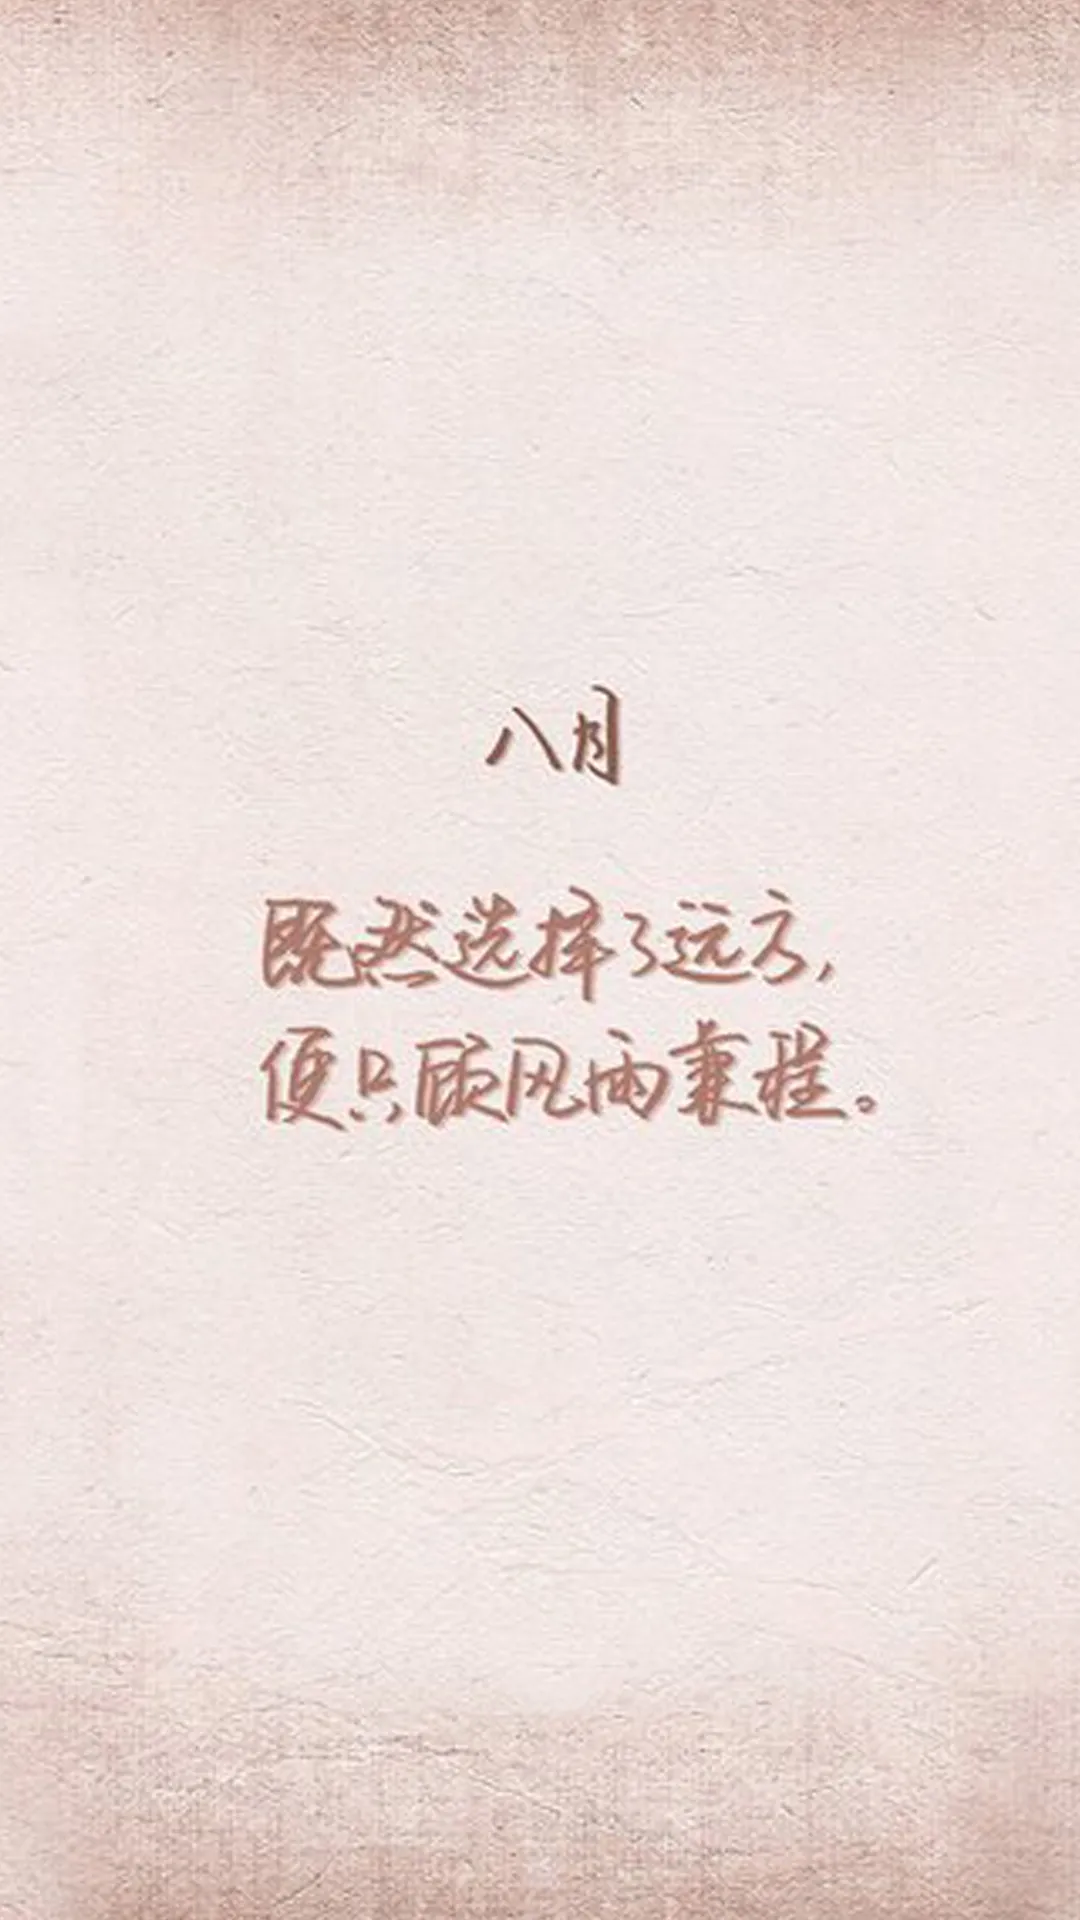 八月
既然选择了远方，
便只顾风雨兼程。